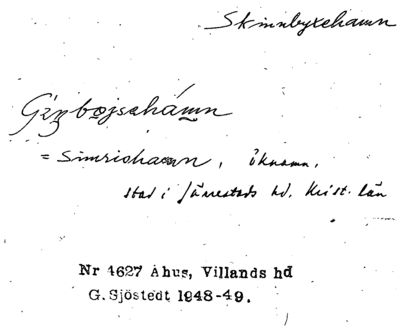 Skinnbyxehamn
Gizbojsehámn
= Simrishamn, öknamn,
stad i Järrestads hd, Krist. län
Nr 4627 Åhus, Villands hd
G. Sjöstedt 1948-49.